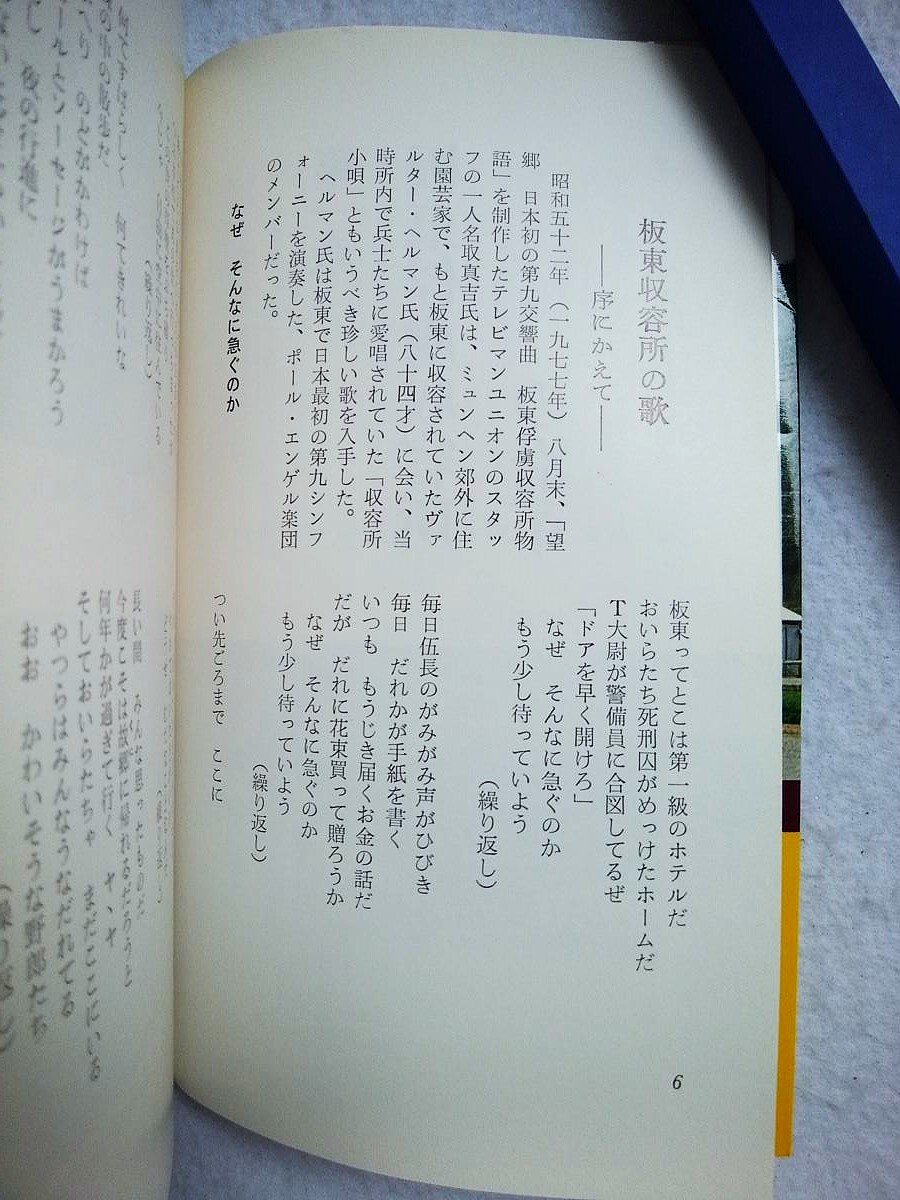 板東収容所の歌
――序にかえて――
昭和五十二年（一九七七年）八月末、「望
郷　日本初の第九交響曲　板東俘虜収容所物
語」を制作したテレビマンユニオンのスタッ
フの一人名取真吉氏は、ミュンヘン郊外に住
む園芸家で、もと板東に収容されていたヴァ
ルター・ヘルマン氏（八十四才）に会い、当
時所内で兵士たちに愛唱されていた「収容所
小唄」ともいうべき珍しい歌を入手した。
ヘルマン氏は板東で日本最初の第九シンフ
ォーニーを演奏した、ポール・エンゲル楽団
のメンバーだった。
なぜ　そんなに急ぐのか
板東ってとこは第一級のホテルだ
おいらたち死刑囚がめっけたホームだ
T大尉が警備員に合図してるぜ
「ドアを早く開けろ」
なぜ　そんなに急ぐのか
もう少し待っていよう
（繰り返し）
毎日伍長のがみがみ声がひびき
毎日　だれかが手紙を書く
いつも　もうじき届くお金の話だ
だが　だれに花束買って贈ろうか
なぜ　そんなに急ぐのか
もう少し待っていよう
（繰り返し）
つい先ごろまで　ここに
6
長い間　みんな思ったものだ
今度こそは故郷に帰れるだろうと
何年かが過ぎて行く
そしておいらたちゃ　まだここにいる
やつらはみんなうなだれてる
おお　かわいそうな野郎たち
（繰り返し）